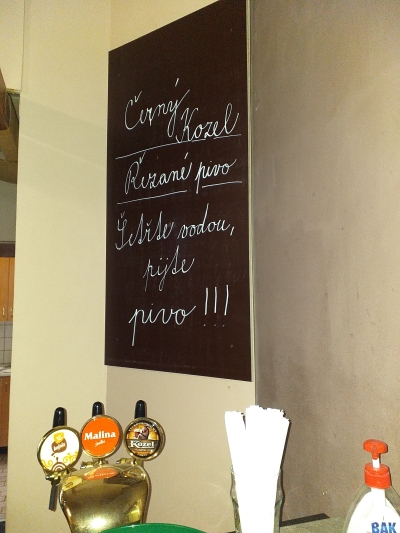 Černý
Kozel
Řezané pivo
Šetřte vodou,
pijte
pivo !!!
Malina
Kozel
BAK